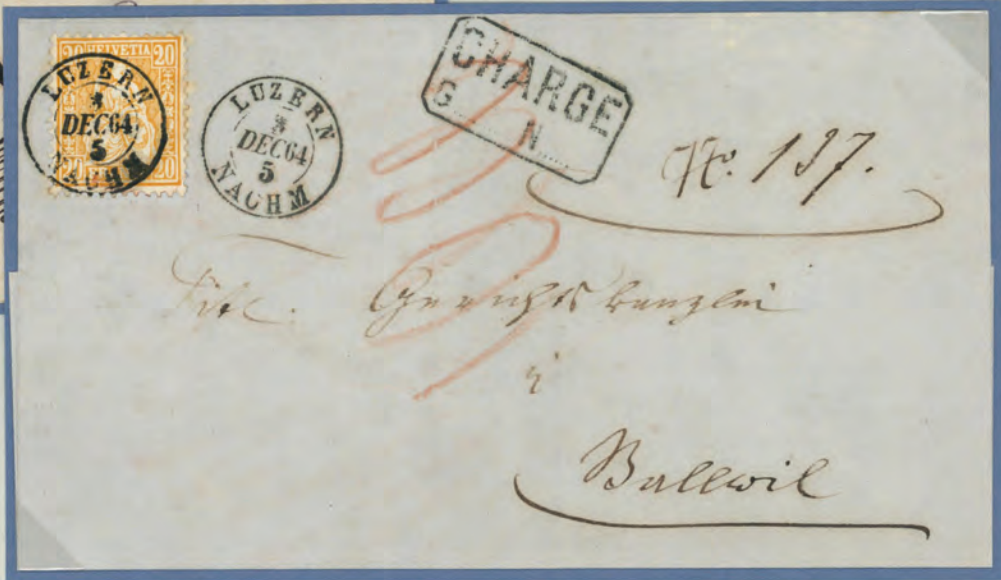 20 HELVETIA 20
20 20
LUZERN
DEC 64
5
NACHM
LUZERN
DEC 64
5
NACHM
CHARGE
G N
No. 137.
Titl. Gerichtskanzlei
Ballwil